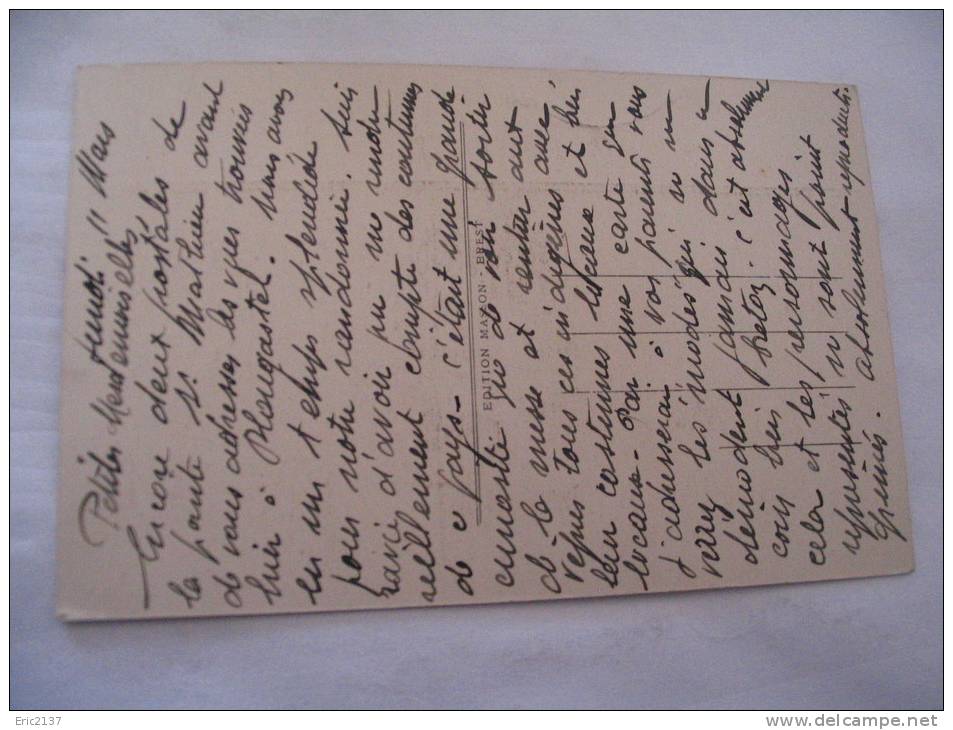 Lundi 11 Mars
Petites Mesdemoiselles
Encore deux postales de
la pointe St Mathieu avant
de vous adresser les vues trouvées
hier à Plougastel. Nous avons
eu un temps splendide
pour notre randonnée. Suis
ravie d'avoir pu me rendre
réellement compte des costumes
de ce pays - c'était une grande
curiosité que de voir sortir
de la messe et rentrer chez
tous ces indigènes et
leur costumes locaux
locaux - Par une carte que
j'adresserai à vos parents vous
verrez les modes qui en se
démodent jamais dans ce
coin Breton. C'est absolument
cela et les personnages
représentés sont point
grimés. absolument reproduits.
EDITION MASSON - BREST
Eric2137
www.delcampe.net